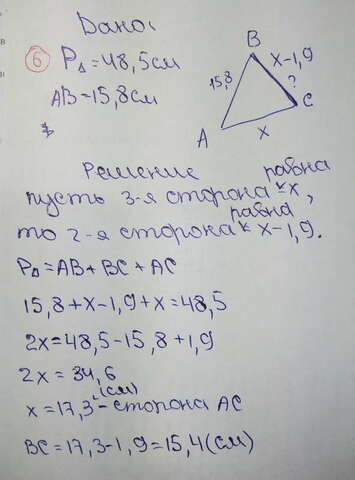 Дано:
6 P△ = 48,5см
AB = 15,8см
B
x-1,9
15,8
?
A
C
x
Решение
пусть 3-я сторона равна x,
то 2-я сторона равна x-1,9.
P△ = AB + BC + AC
15,8 + x - 1,9 + x = 48,5
2x = 48,5 - 15,8 + 1,9
2x = 34,6
x = 17,3 (см) - сторона AC
BC = 17,3 - 1,9 = 15,4 (см)